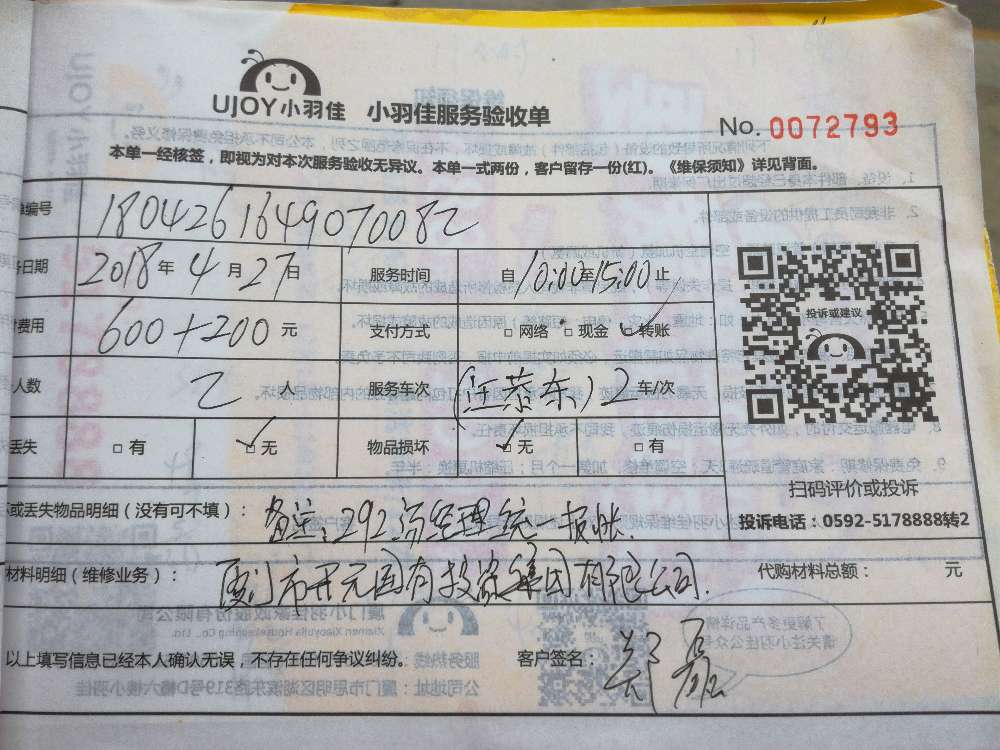 UJOY小羽佳 小羽佳服务验收单
No. 0072793
本单一经核签，即视为对本次服务验收无异议。本单一式两份，客户留存一份(红)。《维保须知》详见背面。
单编号 1804261649070082
务日期 2018年4月27日 服务时间 自10:00至15:00止
费用 600+200元 支付方式 □网络 □现金 □转账
投诉或建议
人数 2人 服务车次 (江恭东)2车/次
丢失 □有 □无 物品损坏 □无 □有
扫码评价或投诉
或丢失物品明细（没有可不填）： 备注:292汤经理统一报账.
投诉电话：0592-5178888转2
材料明细（维修业务）： 厦门市开元国有投资集团有限公司. 代购材料总额： 元
以上填写信息已经本人确认无误，不存在任何争议纠纷。 客户签名：